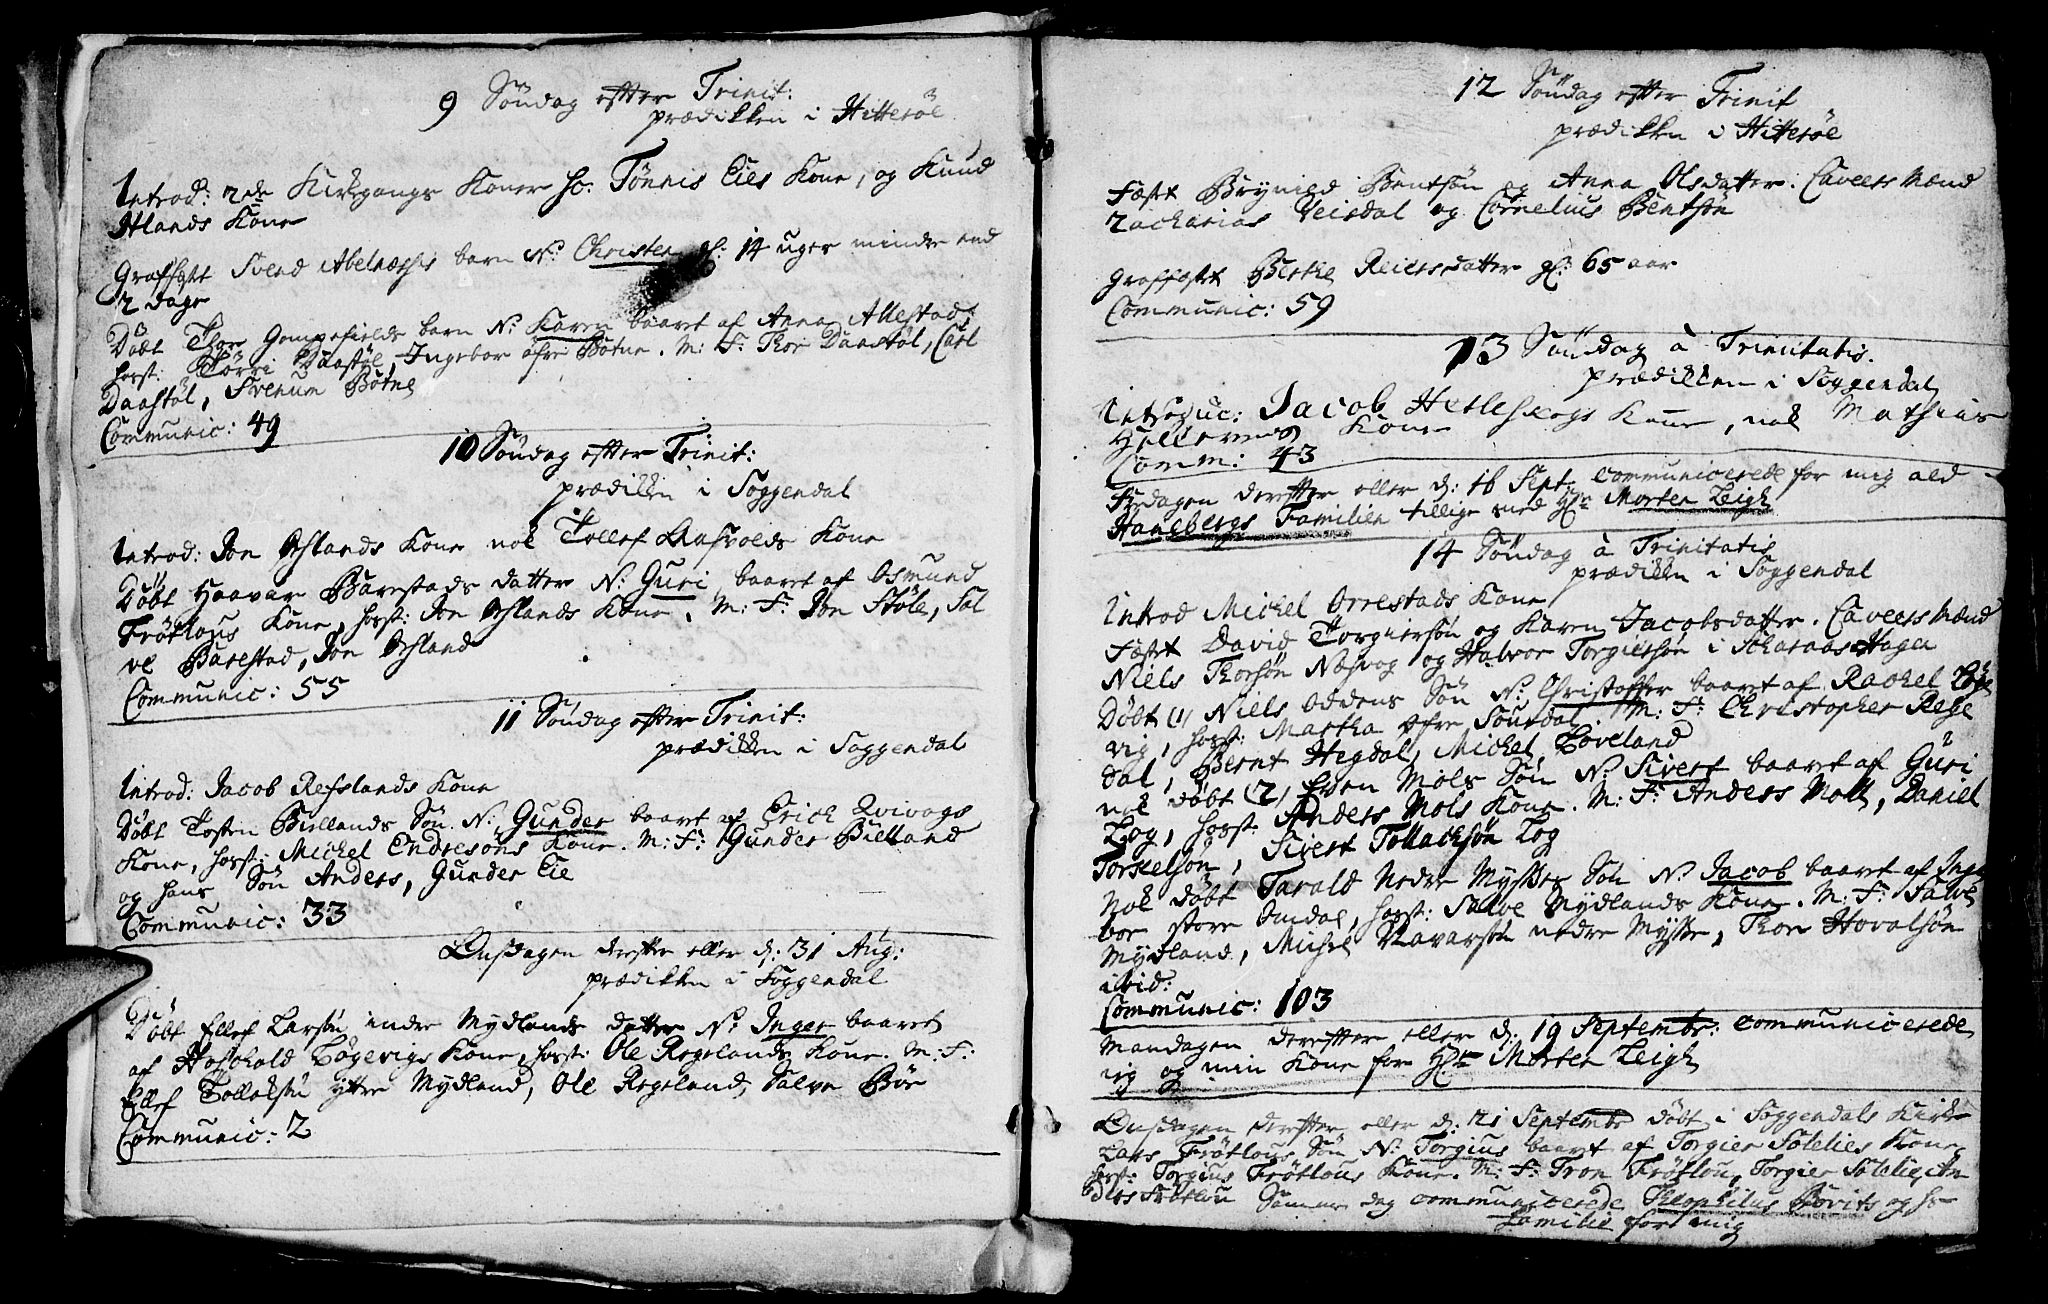 9 Søndag efter Trinit:
prædikken i Hitterøe
Introd: 2de Kirkgangs Koner sc. Tønnis Eies Kone, og Knud
Atlands Kone
Graffæst Svend Abelnæsis barn N: Christen gl: 14 uger mindre end
2 dage
Døbt Thore Gompefields barn N: Karen baaret af Anna Allestad,
horst: Tørri Daastøl, Ingebor øfre Bøtne. M: F: Thor Daastøl, Carl
Daastøl, Svenum Bøtne
Communic: 49
10 Søndag efter Trinit:
prædikken i Soggendal
Introd: Jon Aslands Kone nok Tollef Aasvolds Kone
Døbt Haavar Barestads datter N: Guri baaret af Osmund
Frøtlous Kone, horst: Jon Aslands Kone. M: F: Jon Støle, Sal
ve Barestad, Jon Asland
Communic: 55
11 Søndag efter Trinit:
prædikken i Soggendal
Introd: Jacob Refslands Kone
Døbt Tosten Biellands Søn N: Gunder baaret af Erich Qvivogs
Kone, horst: Michel Endresøns Kone. M: F: Gunder Bielland
og hans Søn Anders, Gunder Eie
Communic: 33
Onsdagen derefter eller d: 31 Aug:
prædikken i Soggendal
Døbt Ellef Larsøn indre Mydlands datter N: Inger baaret
af Hoskold Løgevigs Kone, horst: Ole Regelands Kone. M: F:
Ellef Tollaksøn yttre Mydland, Ole Regeland, Salve Bøe
Communic: 2
12 Søndag efter Trinit
prædikken i Hitterøe
Fæst Brynild Bentsøn og Anna Olsdatter. Caveers Mænd
Zacharias Veisdal og Cornelius Bentsøn
Grafffæst Berthe Reiersdatter gl: 65 aar
Communic: 59
13 Søndag à Trinitatis.
prædikken i Soggendal
Introduc: Jacob Hetleskogs Kone, nok Mathias
Hellerens Kone
Comm: 43
Fredagen derefter eller d: 16 Sept. communicerede for mig ald
Hanebergs Familien tillige med Hr Morten Leigh
14 Søndag à Trinitatis
prædikken i Soggendal
Introd Michel Orrestads Kone
Fæst David Torgiersøn og Karen Jacobsdatter. Caveers Mænd
Niels Thorsøn Næsvog og Halvor Torgiersøn i Skaraas Hagen
Døbt (1) Niels Oddens Søn N: Christoffer baaret af Rachel Løge
vig, horst: Martha øfre Sourdal. M: F: Christopher Rege
dal, Bernt Hegdal, Michel Loveland
nok døbt (2) Even Mols Søn N: Sivert baaret af Guri
Log, horst: Anders Mols Kone. M: F: Anders Moll, Daniel
Torkelsøn, Sivert Tollachsøn Log
Nok døbt Tarald Nedre Mysse Søn N: Jacob baaret af Inge
bor store Omdal, horst: Salve Mydlands Kone. M: F: Salve
Mydland, Michel Havarsøn nedre Mysse, Thore Hovalsøn
ibid:
Communic: 103
Mandagen derefter eller d: 19 Septembr: communicerede
ieg og min Kone for Hr Morten Leigh
Onsdagen derefter eller d: 21 Septembr døbt i Soggendals Kirke
Lars Frøtlous Søn N: Torgius baaret af Torgier Sotelies Kone
horst: Torgius Frøtlous Kone. M: F: Tron Frøtlou, Torgier Sotelie, An
ders Frøtlou Samme dag communicerede Theophilus Børits og hs
Familie for mig